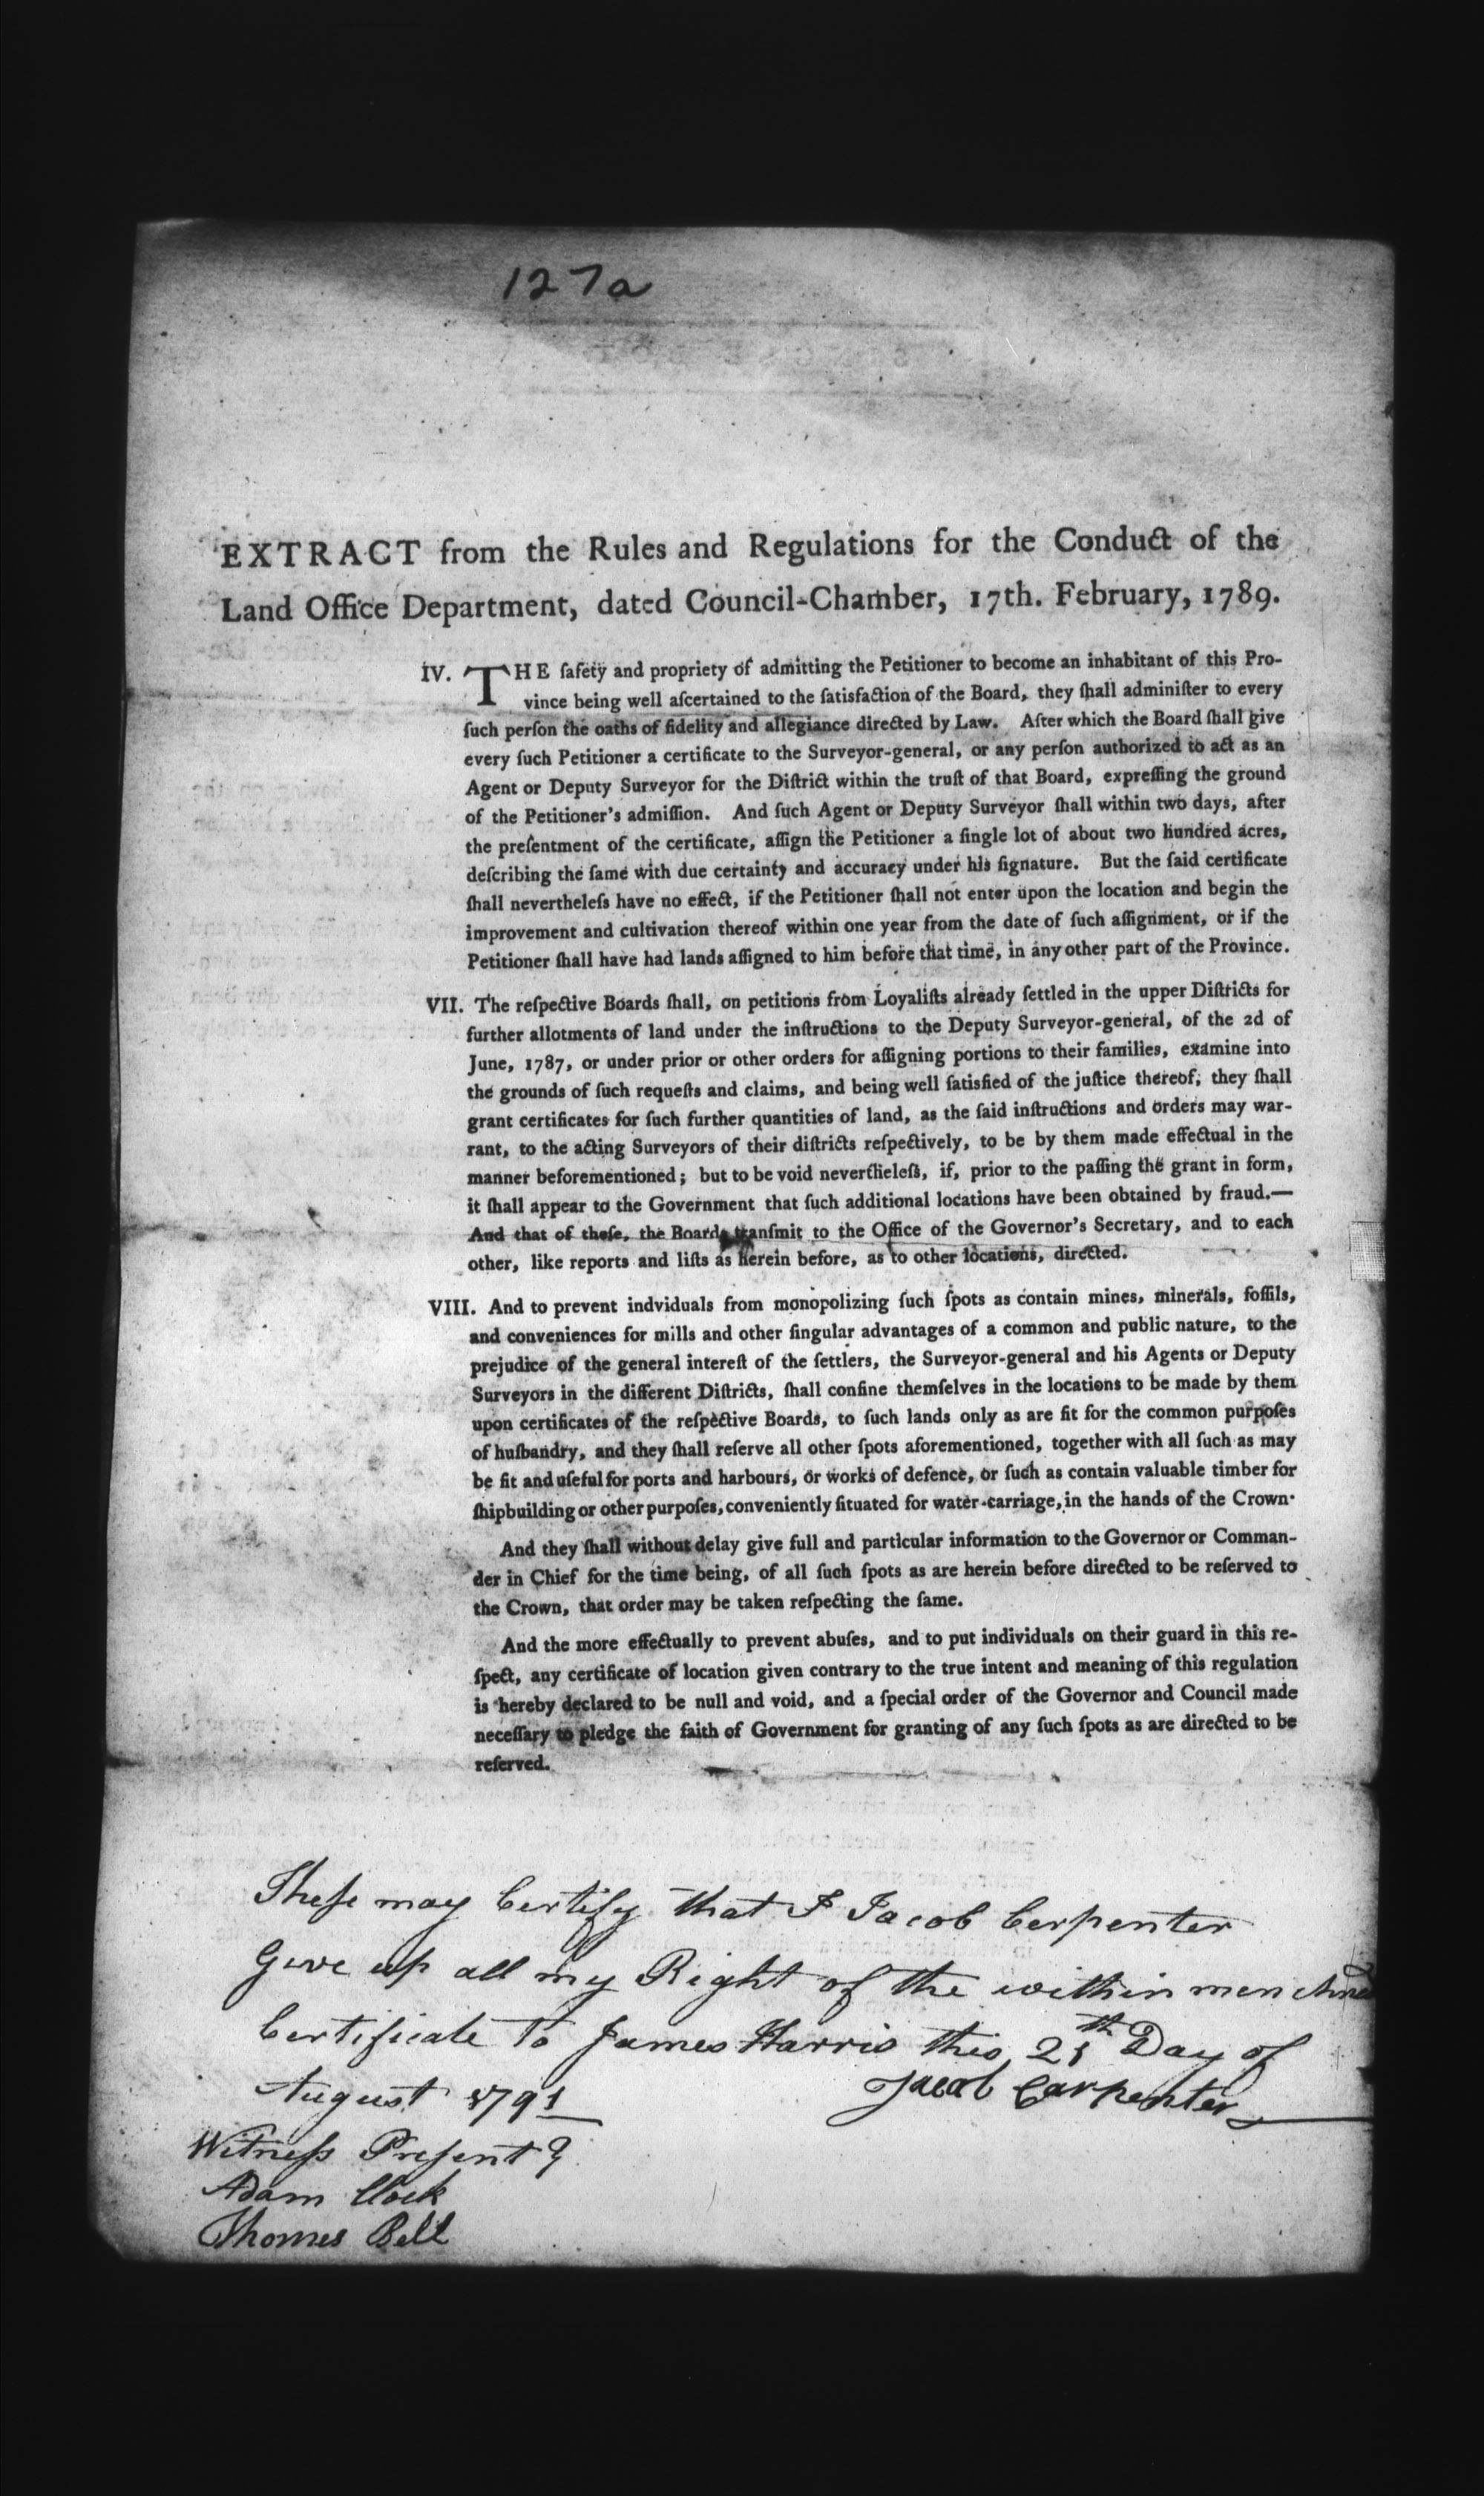 127a
EXTRACT from the Rules and Regulations for the Conduct of the
Land Office Department, dated Council-Chamber, 17th. February, 1789.
IV. THE ſafety and propriety of admitting the Petitioner to become an inhabitant of this Pro-
vince being well aſcertained to the ſatisfaction of the Board, they ſhall adminiſter to every
ſuch perſon the oaths of fidelity and allegiance directed by Law. After which the Board ſhall give
every ſuch Petitioner a certificate to the Surveyor-general, or any perſon authorized to act as an
Agent or Deputy Surveyor for the Diſtrict within the truſt of that Board, expreſſing the ground
of the Petitioner's admiſſion. And ſuch Agent or Deputy Surveyor ſhall within two days, after
the preſentment of the certificate, aſſign the Petitioner a ſingle lot of about two hundred acres,
deſcribing the ſame with due certainty and accuracy under his ſignature. But the ſaid certificate
ſhall nevertheleſs have no effect, if the Petitioner ſhall not enter upon the location and begin the
improvement and cultivation thereof within one year from the date of ſuch aſſignment, or if the
Petitioner ſhall have had lands aſſigned to him before that time, in any other part of the Province.
VII. The reſpective Boards ſhall, on petitions from Loyaliſts already ſettled in the upper Diſtricts for
further allotments of land under the inſtructions to the Deputy Surveyor-general, of the 2d of
June, 1787, or under prior or other orders for aſſigning portions to their families, examine into
the grounds of ſuch requeſts and claims, and being well ſatisfied of the juſtice thereof, they ſhall
grant certificates for ſuch further quantities of land, as the ſaid inſtructions and orders may war-
rant, to the acting Surveyors of their diſtricts reſpectively, to be by them made effectual in the
manner beforementioned; but to be void nevertheleſs, if, prior to the paſſing the grant in form,
it ſhall appear to the Government that ſuch additional locations have been obtained by fraud.—
And that of theſe, the Boards tranſmit to the Office of the Governor's Secretary, and to each
other, like reports and liſts as herein before, as to other locations, directed.
VIII. And to prevent indviduals from monopolizing ſuch ſpots as contain mines, minerals, foſſils,
and conveniences for mills and other ſingular advantages of a common and public nature, to the
prejudice of the general intereſt of the ſettlers, the Surveyor-general and his Agents or Deputy
Surveyors in the different Diſtricts, ſhall confine themſelves in the locations to be made by them
upon certificates of the reſpective Boards, to ſuch lands only as are fit for the common purpoſes
of huſbandry, and they ſhall reſerve all other ſpots aforementioned, together with all ſuch as may
be fit and uſeful for ports and harbours, or works of defence, or ſuch as contain valuable timber for
ſhipbuilding or other purpoſes, conveniently ſituated for water-carriage, in the hands of the Crown.
And they ſhall without delay give full and particular information to the Governor or Comman-
der in Chief for the time being, of all ſuch ſpots as are herein before directed to be reſerved to
the Crown, that order may be taken reſpecting the ſame.
And the more effectually to prevent abuſes, and to put individuals on their guard in this re-
ſpect, any certificate of location given contrary to the true intent and meaning of this regulation
is hereby declared to be null and void, and a ſpecial order of the Governor and Council made
neceſſary to pledge the faith of Government for granting of any ſuch ſpots as are directed to be
reſerved.
Theſe may Certify that I Jacob Cerpenter
Give up all my Right of the within
Certificate To James Harris this 25th Day of
August 1791
Jacob Carpenter
Witneſs Preſent
Adam Clock
Thomes Bell